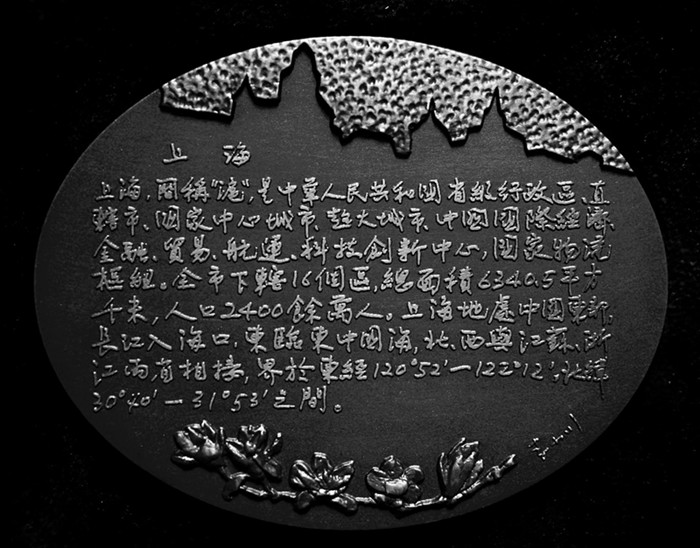 上海
上海,簡稱"滬",是中華人民共和國省級行政區、直
轄市、國家中心城市、超大城市、中國國際經濟、
金融、貿易、航運、科技創新中心,國家物流
樞紐。全市下轄16個區,總面積6340.5平方
千米,人口2400餘萬人。上海地處中國東部,
長江入海口,東臨東中國海,北、西與江蘇、浙
江兩省相接,界於東經120°52′—122°12′,北緯
30°40′—31°53′之間。